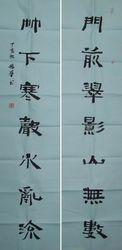 門前翠影山無數
竹下寒聲水亂流